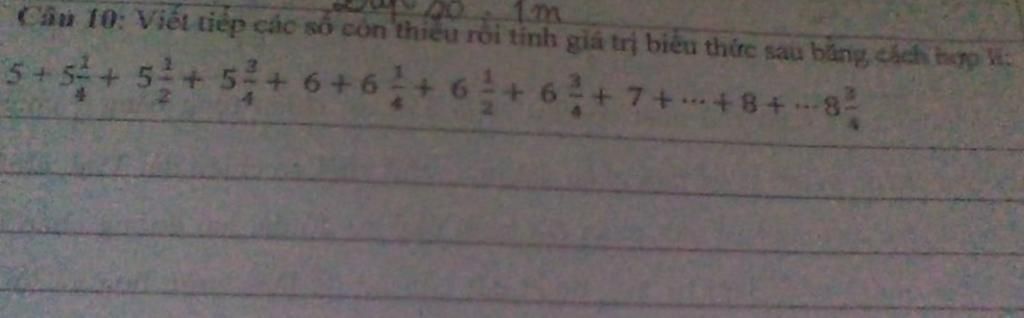 1m
Câu 10: Viết tiếp các số còn thiếu rồi tính giá trị biểu thức sau bằng cách hợp lí:
5 + 5\frac{1}{4} + 5\frac{1}{2} + 5\frac{3}{4} + 6 + 6\frac{1}{4} + 6\frac{1}{2} + 6\frac{3}{4} + 7 + ... + 8 + ... 8\frac{3}{4}